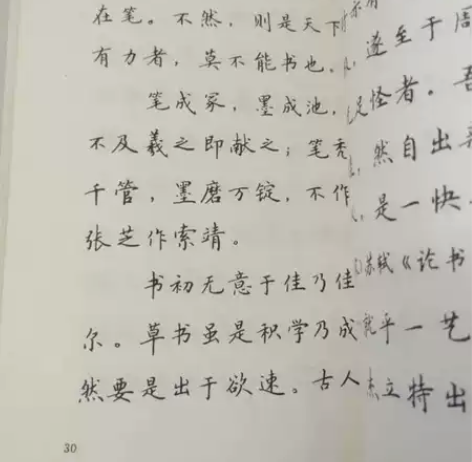 在笔。不然，则是天下
有力者，莫不能书也。
笔成冢，墨成池，
不及羲之即献之；笔秃
千管，墨磨万锭，不作
张芝作索靖。
书初无意于佳乃佳
尔。草书虽是积学乃成
然要是出于欲速。古人
30
遂至于周
怪者。吾
然自出
是一快
苏轼《论书
乎一艺
立特出